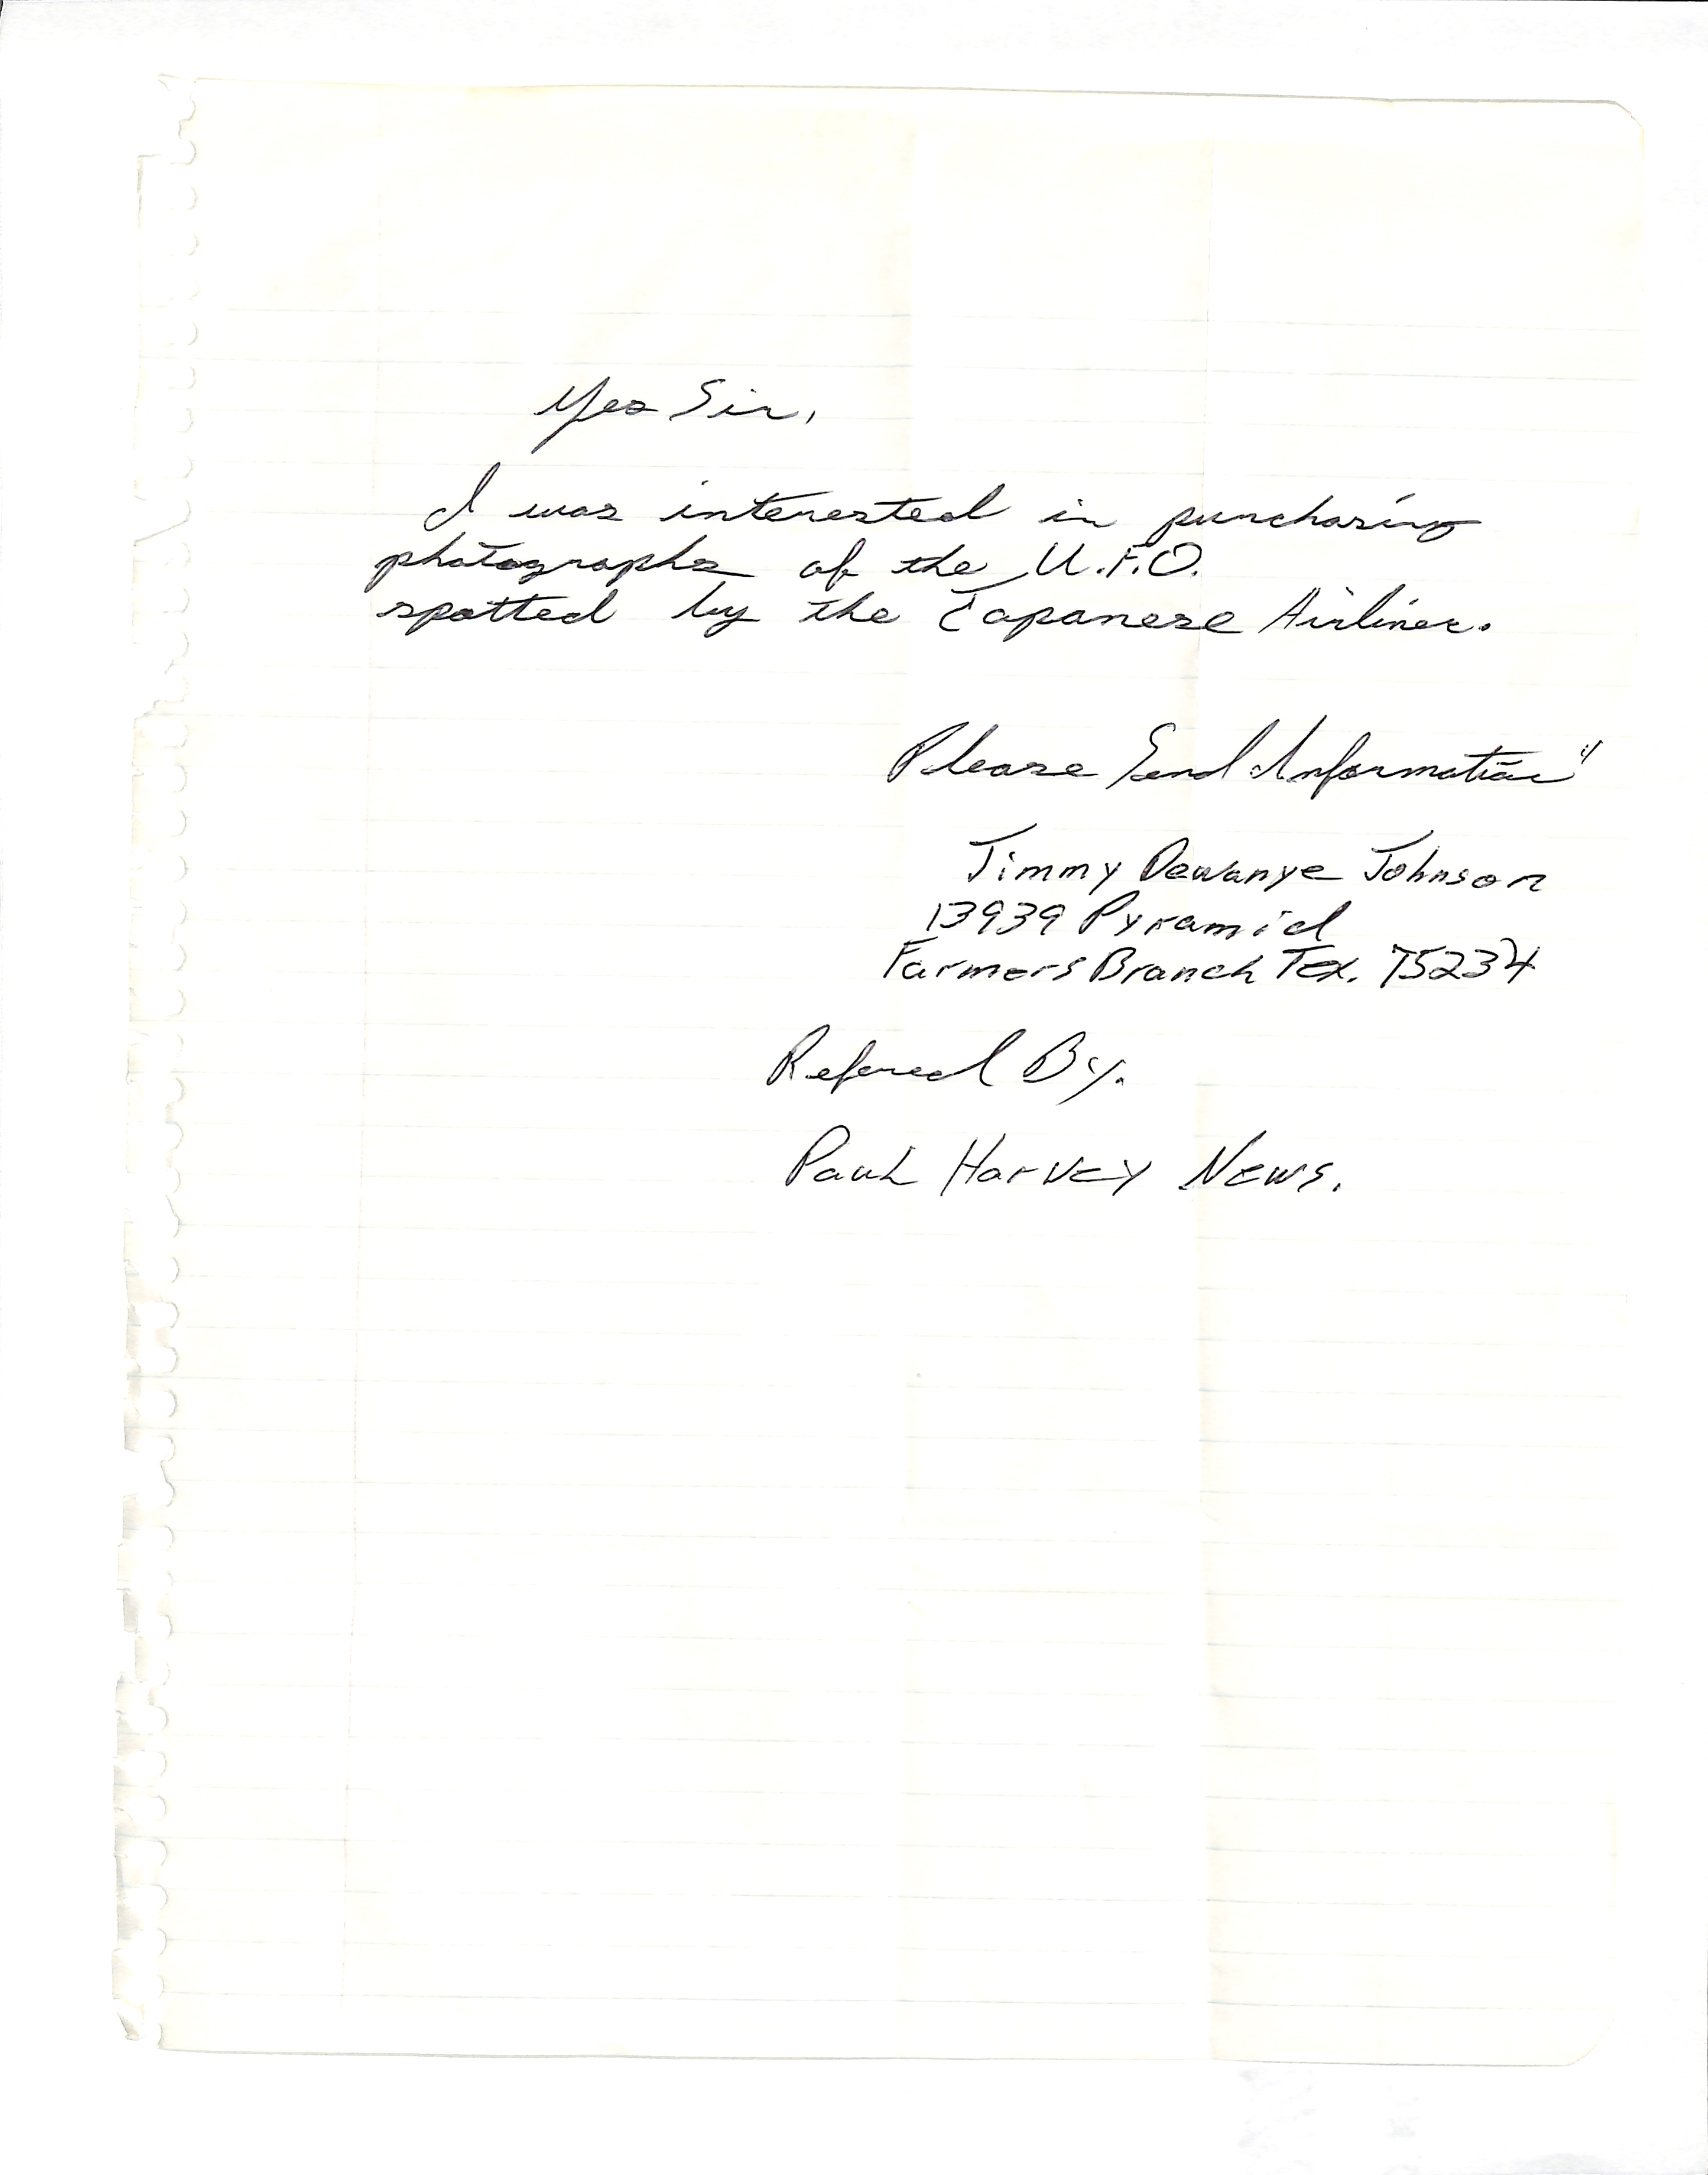 Yes Sir,
I was interested in purchasing
photographs of the U.F.O.
spotted by the Japanese Airliner.
Please Send Information"
Jimmy Dewanye Johnson
13939 Pyramid
Farmers Branch Tex. 75234
Refered By.
Paul Harvey News.